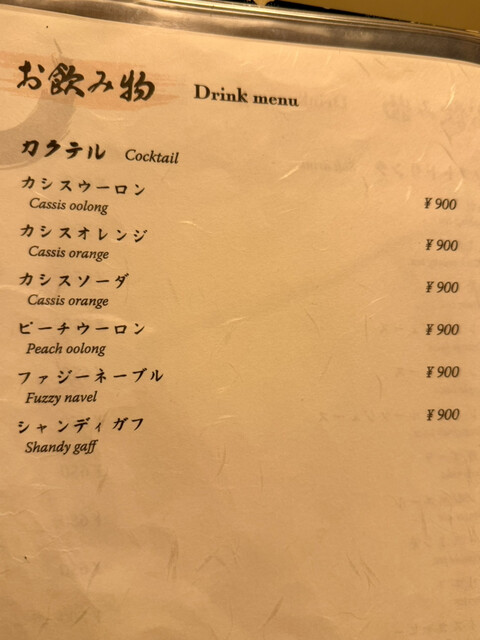 お飲み物 Drink menu
カクテル Cocktail
カシスウーロン
Cassis oolong ¥900
カシスオレンジ
Cassis orange ¥900
カシスソーダ
Cassis orange ¥900
ピーチウーロン ¥900
Peach oolong
ファジーネーブル ¥900
Fuzzy navel
シャンディガフ ¥900
Shandy gaff